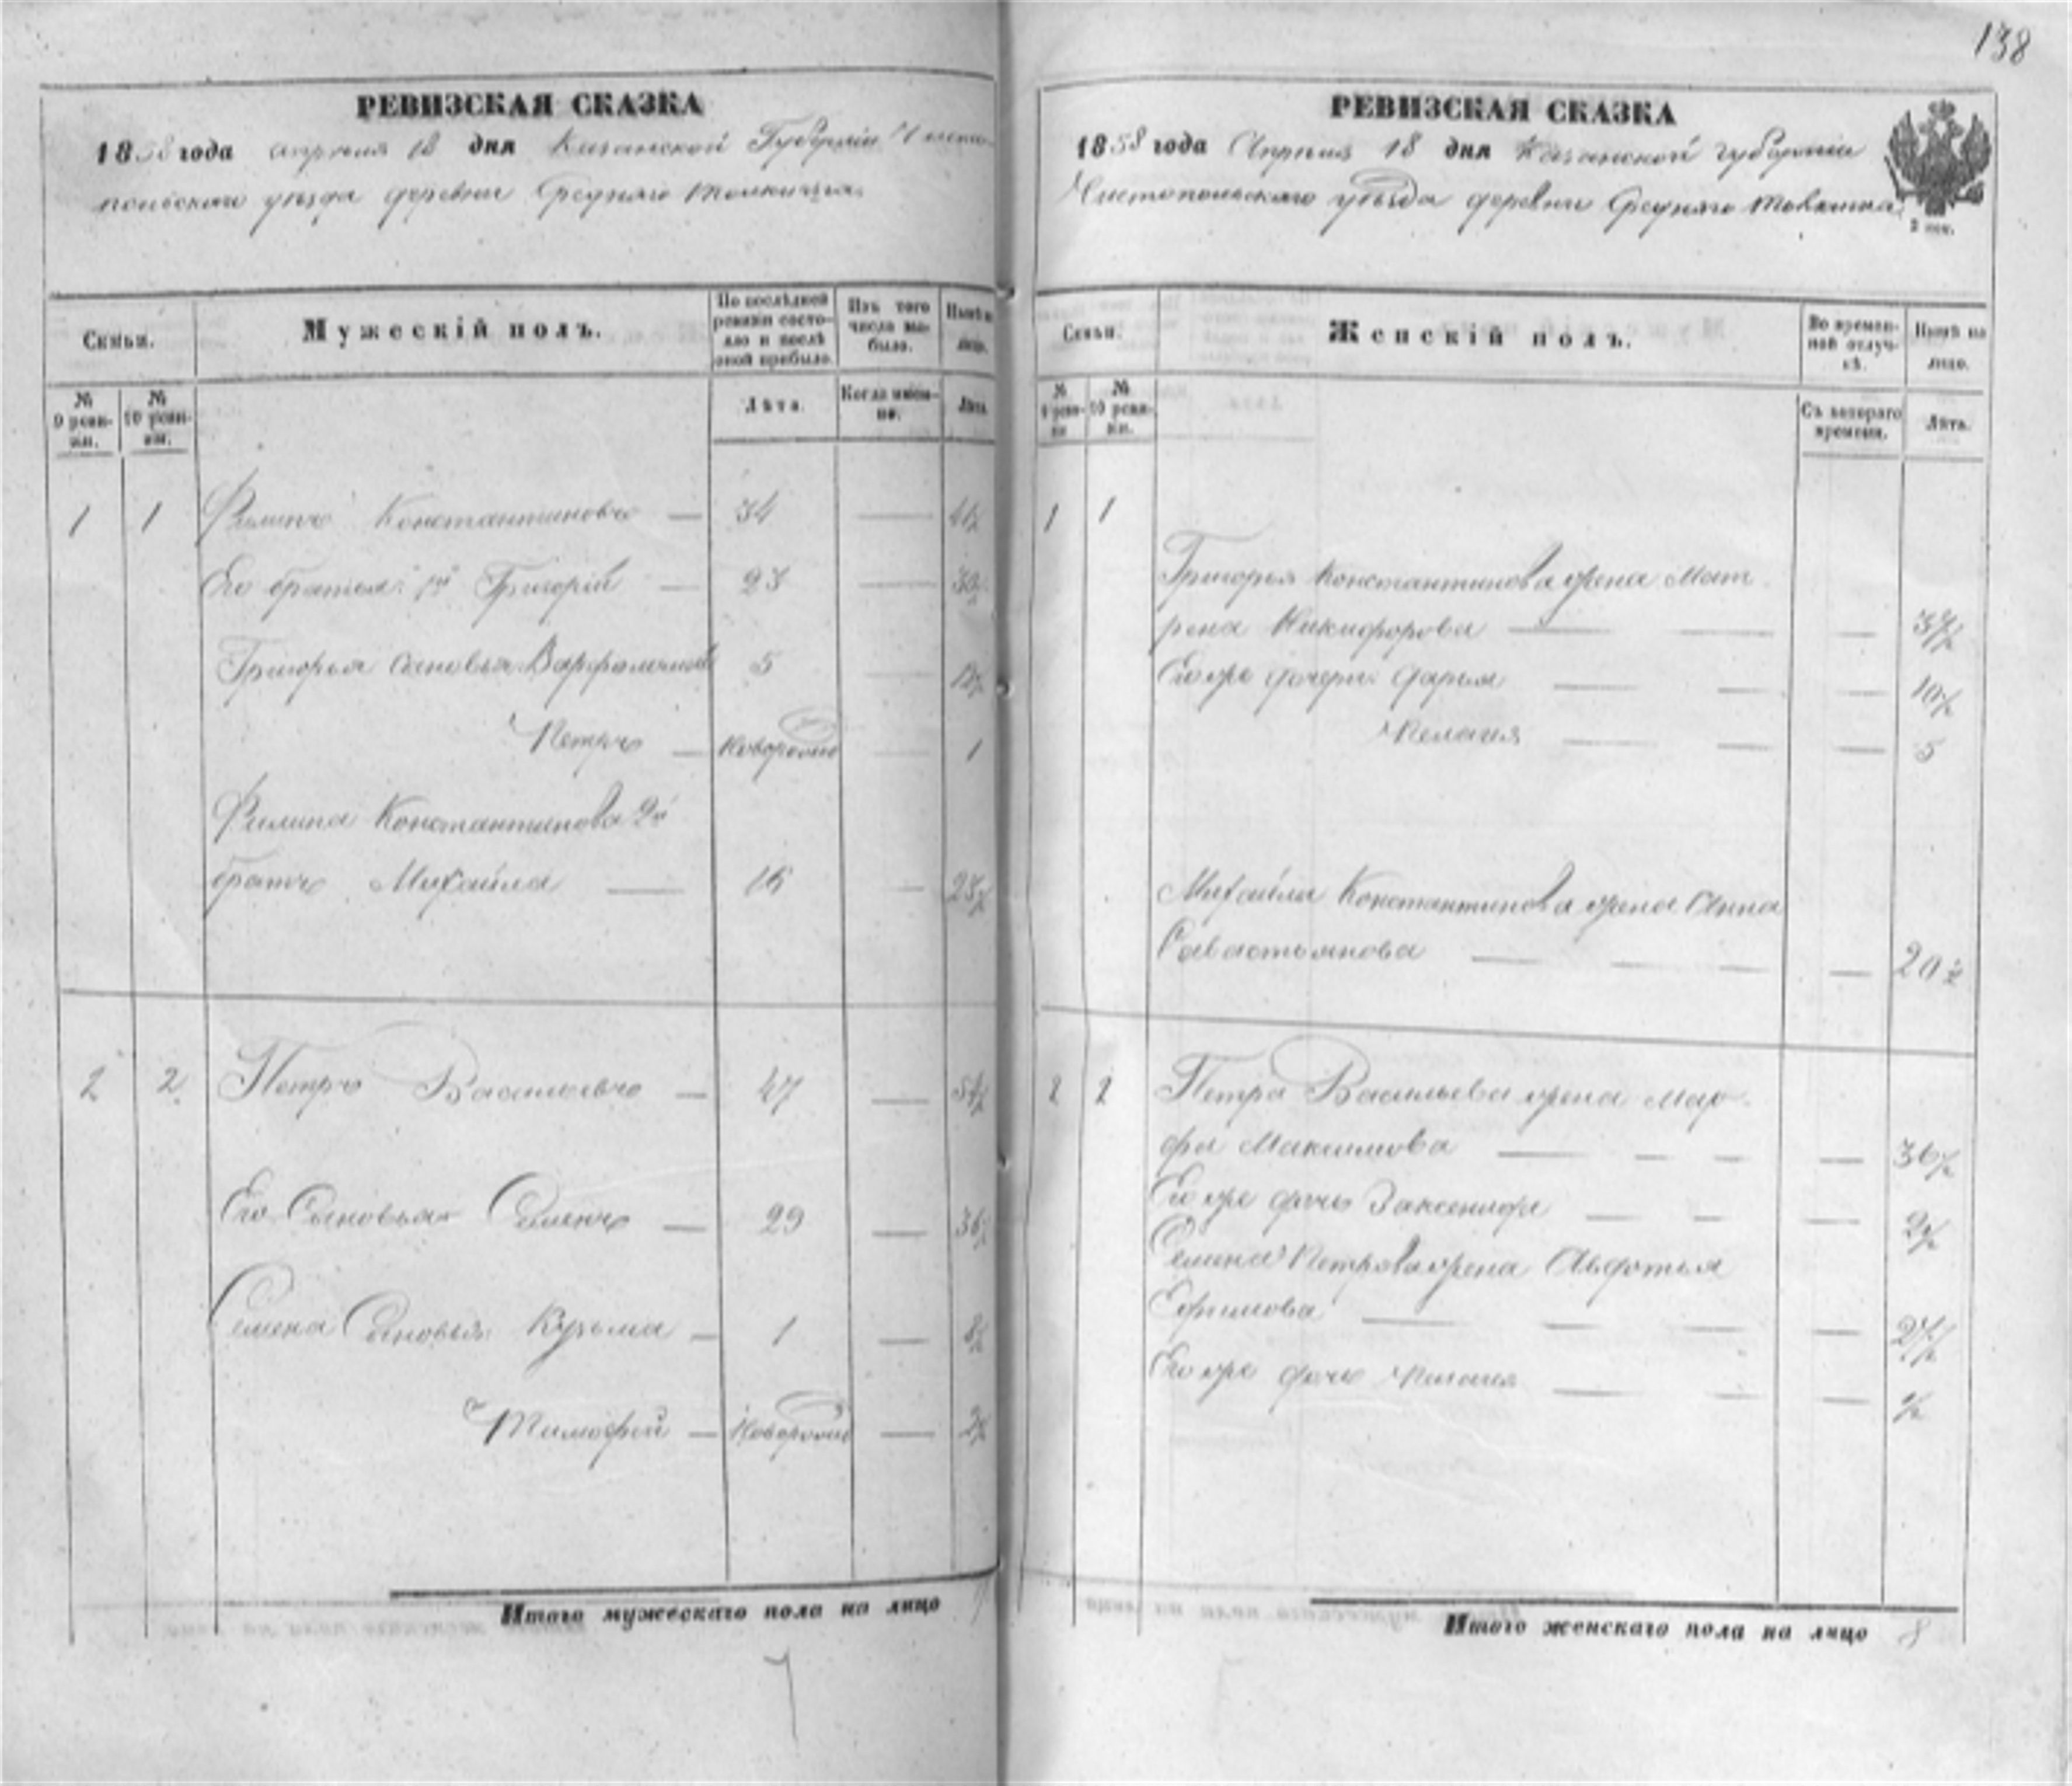 138
РЕВИЗСКАЯ СКАЗКА
1858 года апреля 18 дня Казанской Губерніи Чисто-
польскаго уезда деревни Средняго Толкиша
Семьи.
Мужескій полъ.
По послѣдней ревизіи состо-
яло и послѣ
оной прибыло.
Изъ того
числа вы-
было.
Нынѣ на
лицо.
№
9 реви-
зіи.
№
10 реви-
зіи.
Лѣта.
Когда имен-
но.
Лѣта.
1 1 Филипъ Константиновъ — 34 — 41½
Его братья: 1й Григорій — 23 — 30½
Григорья сыновья Варфаламей 5 — 12½
Петръ — новорожд — 1
Филипа Константинова 2й
братъ Михайла — 16 — 23½
2 2 Петръ Васильевъ — 47 — 54½
Его Сыновья Семенъ — 29 — 36½
Семена Сыновья Кузьма — 1 — 8½
Тимофей — Новорожд — 2½
Итого мужескаго пола на лицо
7
РЕВИЗСКАЯ СКАЗКА
1858 года Апреля 18 дня Казанской губерніи
Чистопольскаго уезда деревни Средняго Толкиша
Семьи.
Женскій полъ.
Во времен-
ной отлуч-
кѣ.
Нынѣ на
лицо.
№
9 реви-
зіи
№
10 реви-
зіи.
Съ котораго
времени.
Лѣта.
1 1
Григорья Константинова жена Мат
рена Никифорова — — — 37½
Его же дочери: Дарья — — — 10½
Пелагея — — — 5
Михайлы Константинова жена Анна
Савастьянова — — — — 20½
2 2 Петра Васильева жена Мар-
фа Максимова — — — — 36½
Его же дочь — — — 2½
Семена Петрова жена Авдотья
Ефимова — — — — 27½
Его же дочь Пелагея — — — ½
Итого женскаго пола на лицо 8